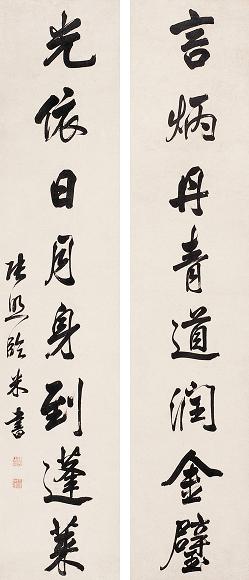 言炳丹青道润金璧
光依日月身到蓬莱
张照临米书